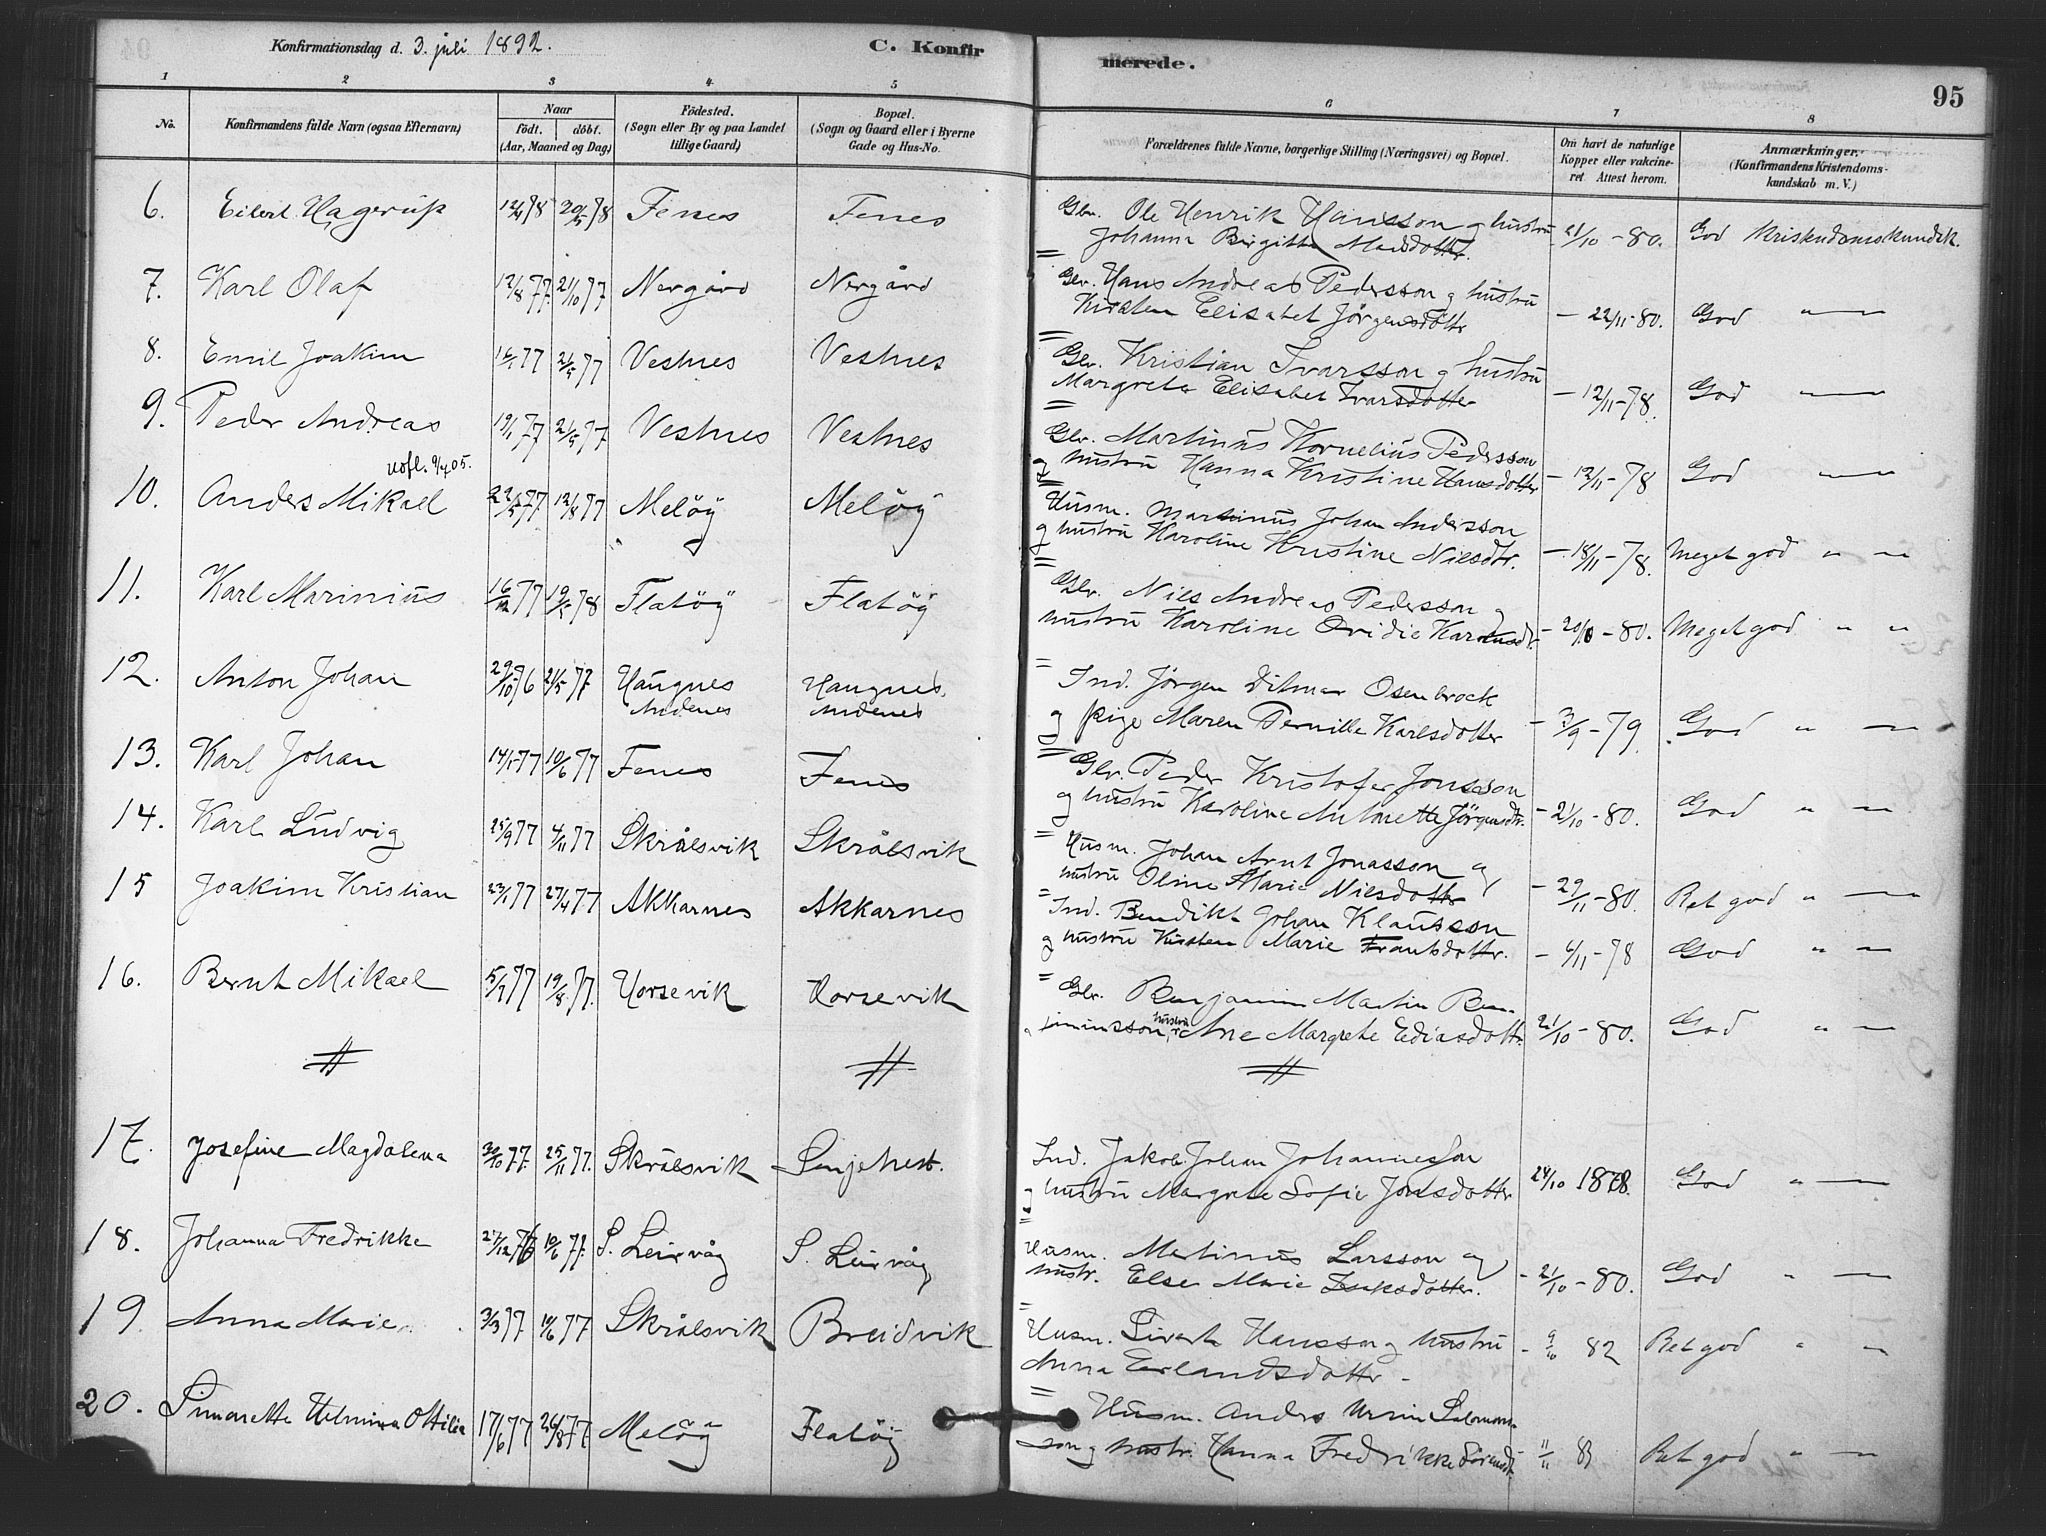 Konfirmationsdag d. 3. juli 1892.
C. Konfirmerede.
95
1 2 3 4 5 6 7 8
No.
Konfirmandens fulde Navn (ogsaa Efternavn)
Naar
födt. döbt.
(Aar, Maaned og Dag)
Födested.
(Sogn eller By og paa Landet
tillige Gaard)
Bopæl.
(Sogn og Gaard eller i Byerne
Gade og Hus-No.
Forældrenes fulde Navne, borgerlige Stilling (Næringsvei) og Bopæl.
Om havt de naturlige
Kopper eller vakcine-
ret Attest herom.
Anmærkninger.
(Konfirmandens Kristendoms-
kundskab m. V.)
6. Eilert Hagerup 12/4 78 20/5 78 Fenes Fenes Gbr. Ole Henrik Hansson og hustru
Johanna Birgitte Madsdotter. 21/10 - 80. God Kristendomskundsk.
7. Karl Olaf 12/8 77. 21/10 77 Nergård Nergård Gbr. Hans Andreas Pedersson og hustru
Kirsten Elisabet Jörgensdottr - 22/11 - 80. God " —
8. Emil Joakim 77 21/5 77 Vestnes Vestnes Gbr. Kristian Ivarsson og hustru
Margrete Elisabet Ivarsdotter - 12/11 - 78. God —
9. Peder Andreas 19/1 77 21/5 77 Vestnes Vestnes Gbr. Martinus Kornelius Pedersson
og hustru Hanna Kristine Hansdotter - 12/11 - 78 God —
Udfl. 05.
10. Anders Mikael 22/5 77 12/8 77 Melöy Melöy Husm. Martinus Johan Andersson
og hustru Karoline Kristine Nilsdtr. - 18/11 - 78. Meget god " —
11. Karl Marinius 16/12 77 19/5 78 Flatöy Flatöy Gbr. Nils Andreas Pedersson og
hustru Karoline Ovidie - 20/10 - 80. Meget god " "
12. Anton Johan 29/10 76 21/5 77 Haugnes
Andenes Haugnes.
Andenes Ind. Jörgen Ditmar Osenbrock
og pige Maren Pernille Karlsdotter - 3/9 - 79. God " —
13. Karl Johan 14/1 77 10/6 77 Fenes Fenes Gbr. Peder Kristofer Jonsson
og hustru Karoline Antonette Jörgensdtr. - 21/10 - 80. God " —
14. Karl Ludvig 25/9 77 4/11 77 Skrålsvik Skrålsvik Husm. Johan Arnt Jonasson og
hustru Oline Marie Nilsdotter - 29/11 - 80. Ret god " —
15 Joakim Kristian 23/1 77 27/4 77 Akkarnes Akkarnes Ind. Bendikt Johan Klausson
og hustru Kirsten Marie Frantsdotter. - 6/11 - 78 God " —
16. Bernt Mikael 5/7 77 19/8 77. Horsevik Horsevik Gbr. Benjamin Martin Ben-
jaminsson og hustru Ane Margrete Eliasdottr. 21/10 - 80. God " —
17. Josefine Magdalena 30/10 77. 25/11 77. Skrålsvik Senjehest. Ind. Jakob Johan Johannesson
og hustru Margrete Sofie Jonsdotter 24/10 1878. God " —
18. Johanna Fredrikke 27/12 76 10/6 77. S. Leirvåg S. Leirvåg Husm. Martinus Larsson og
hustr. Else Marie Isaksdotter. - 21/10 - 80. God " —
19. Anna Marie 3/3 77 10/6 77 Skrålsvik Breidvik Husm. Sivert Hansson og hustru
Anna Erlandsdottr. - 82 Ret god " "
20. Helmina Ottilia 17/6 77 26/8 77 Melöy Flatöy Husm. Anders Salomons-
son og hustr. Hanna Fredrikke 11/11 Ret god " —